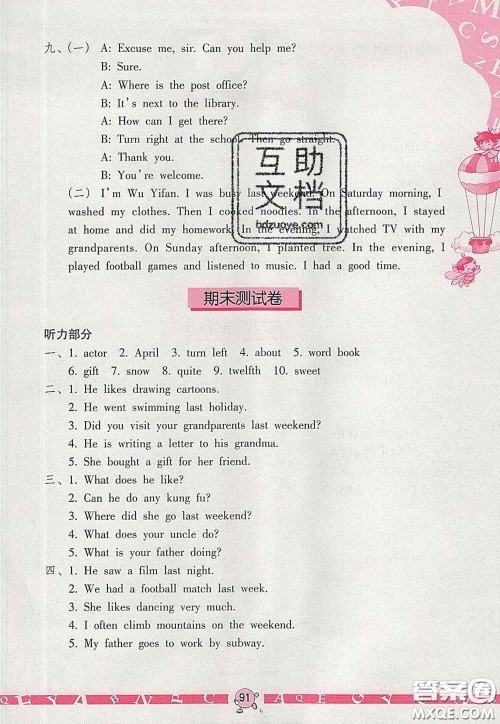 九、(一) A: Excuse me, sir. Can you help me?
B: Sure.
A: Where is the post office?
B: It's next to the library.
A: How can I get there?
B: Turn right at the school. Then go straight.
A: Thank you.
B: You're welcome.
(二) I'm Wu Yifan. I was busy last weekend. On Saturday morning, I
washed my clothes. Then I cooked noodles. In the afternoon, I stayed
at home and did my homework. In the evening, I watched TV with my
grandparents. On Sunday afternoon, I planted tree. In the evening, I
played football games and listened to music. I had a good time.
互助
文档
hdzuoye.com
期末测试卷
听力部分
一、1. actor 2. April 3. turn left 4. about 5. word book
6. gift 7. snow 8. quite 9. twelfth 10. sweet
二、1. He likes drawing cartoons.
2. He went swimming last holiday.
3. Did you visit your grandparents last weekend?
4. He is writing a letter to his grandma.
5. She bought a gift for her friend.
三、1. What does he like?
2. Can he do any kung fu?
3. Where did she go last weekend?
4. What does your uncle do?
5. What is your father doing?
四、1. He saw a film last night.
2. We had a football match last week.
3. She likes dancing very much.
4. I often climb mountains on the weekend.
5. My father goes to work by subway.
91
答案圈
MXQE.COM